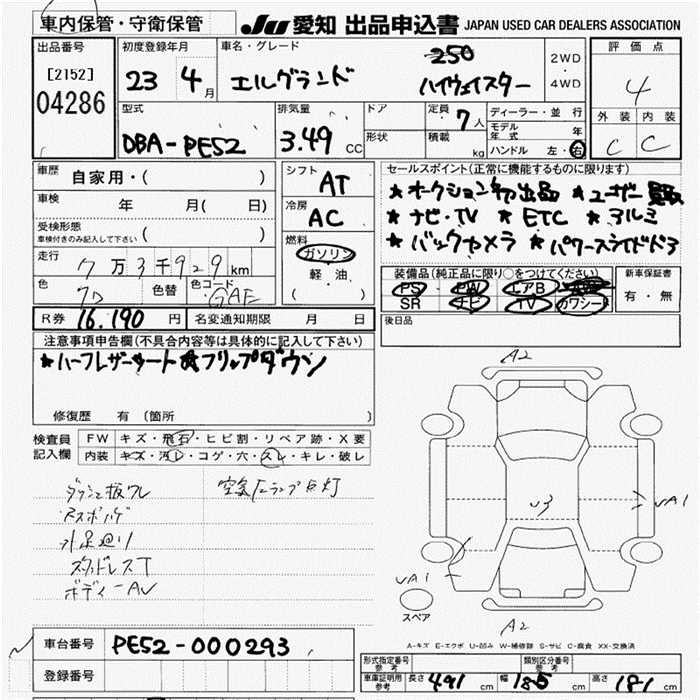 車内保管・守衛保管
JU 愛知 出品申込書 JAPAN USED CAR DEALERS ASSOCIATION
出品番号
[2152]
04286
初度登録年月
23 4月
車名・グレード
エルグランド
250
ハイウェイスター
2WD
・
4WD
評価点
4
外装 内装
C C
型式
DBA-PE52
排気量
3.49 CC
ドア
形状
定員 7人
積載 kg
ディーラー・並行
モデル年式 年
ハンドル 左・右
車歴 自家用・( )
車検 年 月( 日)
受検形態
車検付きのみ記入して下さい ( )
走行 7万3千929km
色 色替 色コード GAE
シフト AT
冷房 AC
燃料
ガソリン
軽・油
( )
セールスポイント(正常に機能するものに限ります)
★オークション初出品 ★ユーザー買取
★ナビ・TV ★ETC ★アルミ
★バックカメラ ★パワースライドドア
装備品(純正品に限り○をつけてください)
PS PW エアB
SR ナビ TV カワシート
新車保証書
有・無
後日品
R券 16.190円 名変通知期限 月 日
注意事項申告欄(不具合内容等は具体的に記入して下さい)
★ハーフレザーシート ★フリップダウン
修復歴 有 〔箇所 〕
検査員記入欄
FW キズ・飛石・ヒビ割・リペア跡・X要
内装 キズ・汚レ・コゲ・穴・スレ・キレ・破レ
空気圧ランプ点灯
スタッドレスT
A2
U3
UA1
UA1
A2
スペア
A-キズ E-エクボ U-凹み W-補修跡 S-サビ C-腐食 XX-交換済
車台番号 PE52-000293
登録番号
形式指定番号 参考
類別区分番号 参考
車庫証明用参考 長さ 491cm 幅 185cm 高さ 181cm